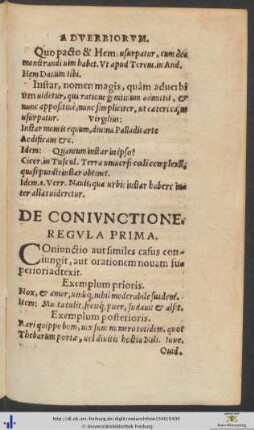 ADVERBIORVM.
Quo pacto & Hem usurpatur, cum
monstrandi uim habet. Vt apud Terent. in And.
Hem Dauum tibi.
Instar, nomen magis, quàm aduerbi
um uidetur, qua ratione genitiuum admittit, &
nunc appositiuè, nunc simpliciter, ut caetera,
usurpatur. Virgilius:
Instar montis equum, diuina Palladis arte
Aedificant &c.
Idem: Quantum instar in ipso!
Cicer. in Tuscul. Terra uniuersi coeli complexu,
quasi puncti instar obtinet.
Idem. 6. Verr. Nauis, quae urbis instar habere in
ter alias uideretur.
DE CONIVNCTIONE.
REGVLA PRIMA.
COniunctio aut similes casus con-
iungit, aut orationem nouam su-
periori adtexit.
Exemplum prioris.
Nox, & amor, uinúq; nihil moderabile suadent.
Item: Multa tulit, fecitq; puer, sudauit & alsit.
Exemplum posterioris.
Rari quippe boni, uix sunt numero totidem, quot
Thebarum portae, uel diuitis hostia Nili. Iuue.
Ouid.
http://dl.ub.uni-freiburg.de/diglit/
© Universitätsbibliothek Freiburg